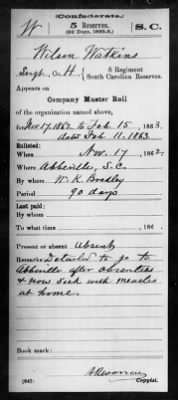 (Confederate.)
W 5 Reserves. S.C.
(90 Days, 1862-3.)
Wilson Watkins
Sergt, Co. H, 5 Regiment
South Carolina Reserves.
Appears on
Company Muster Roll
of the organization named above,
for Nov 17, 1862 to Feb 15, 1863.
dated Feb 11, 1863
Enlisted:
When Nov. 17, 1862.
Where Abbeville, S.C.
By whom W. K. Bradley
Period 90 days
Last paid:
By whom
To what time , 186 .
Present or absent Absent
Remarks: Detailed to go to
Abbeville after absentees
& now sick with measles
at home.
Book mark:
(642)
Copyist.